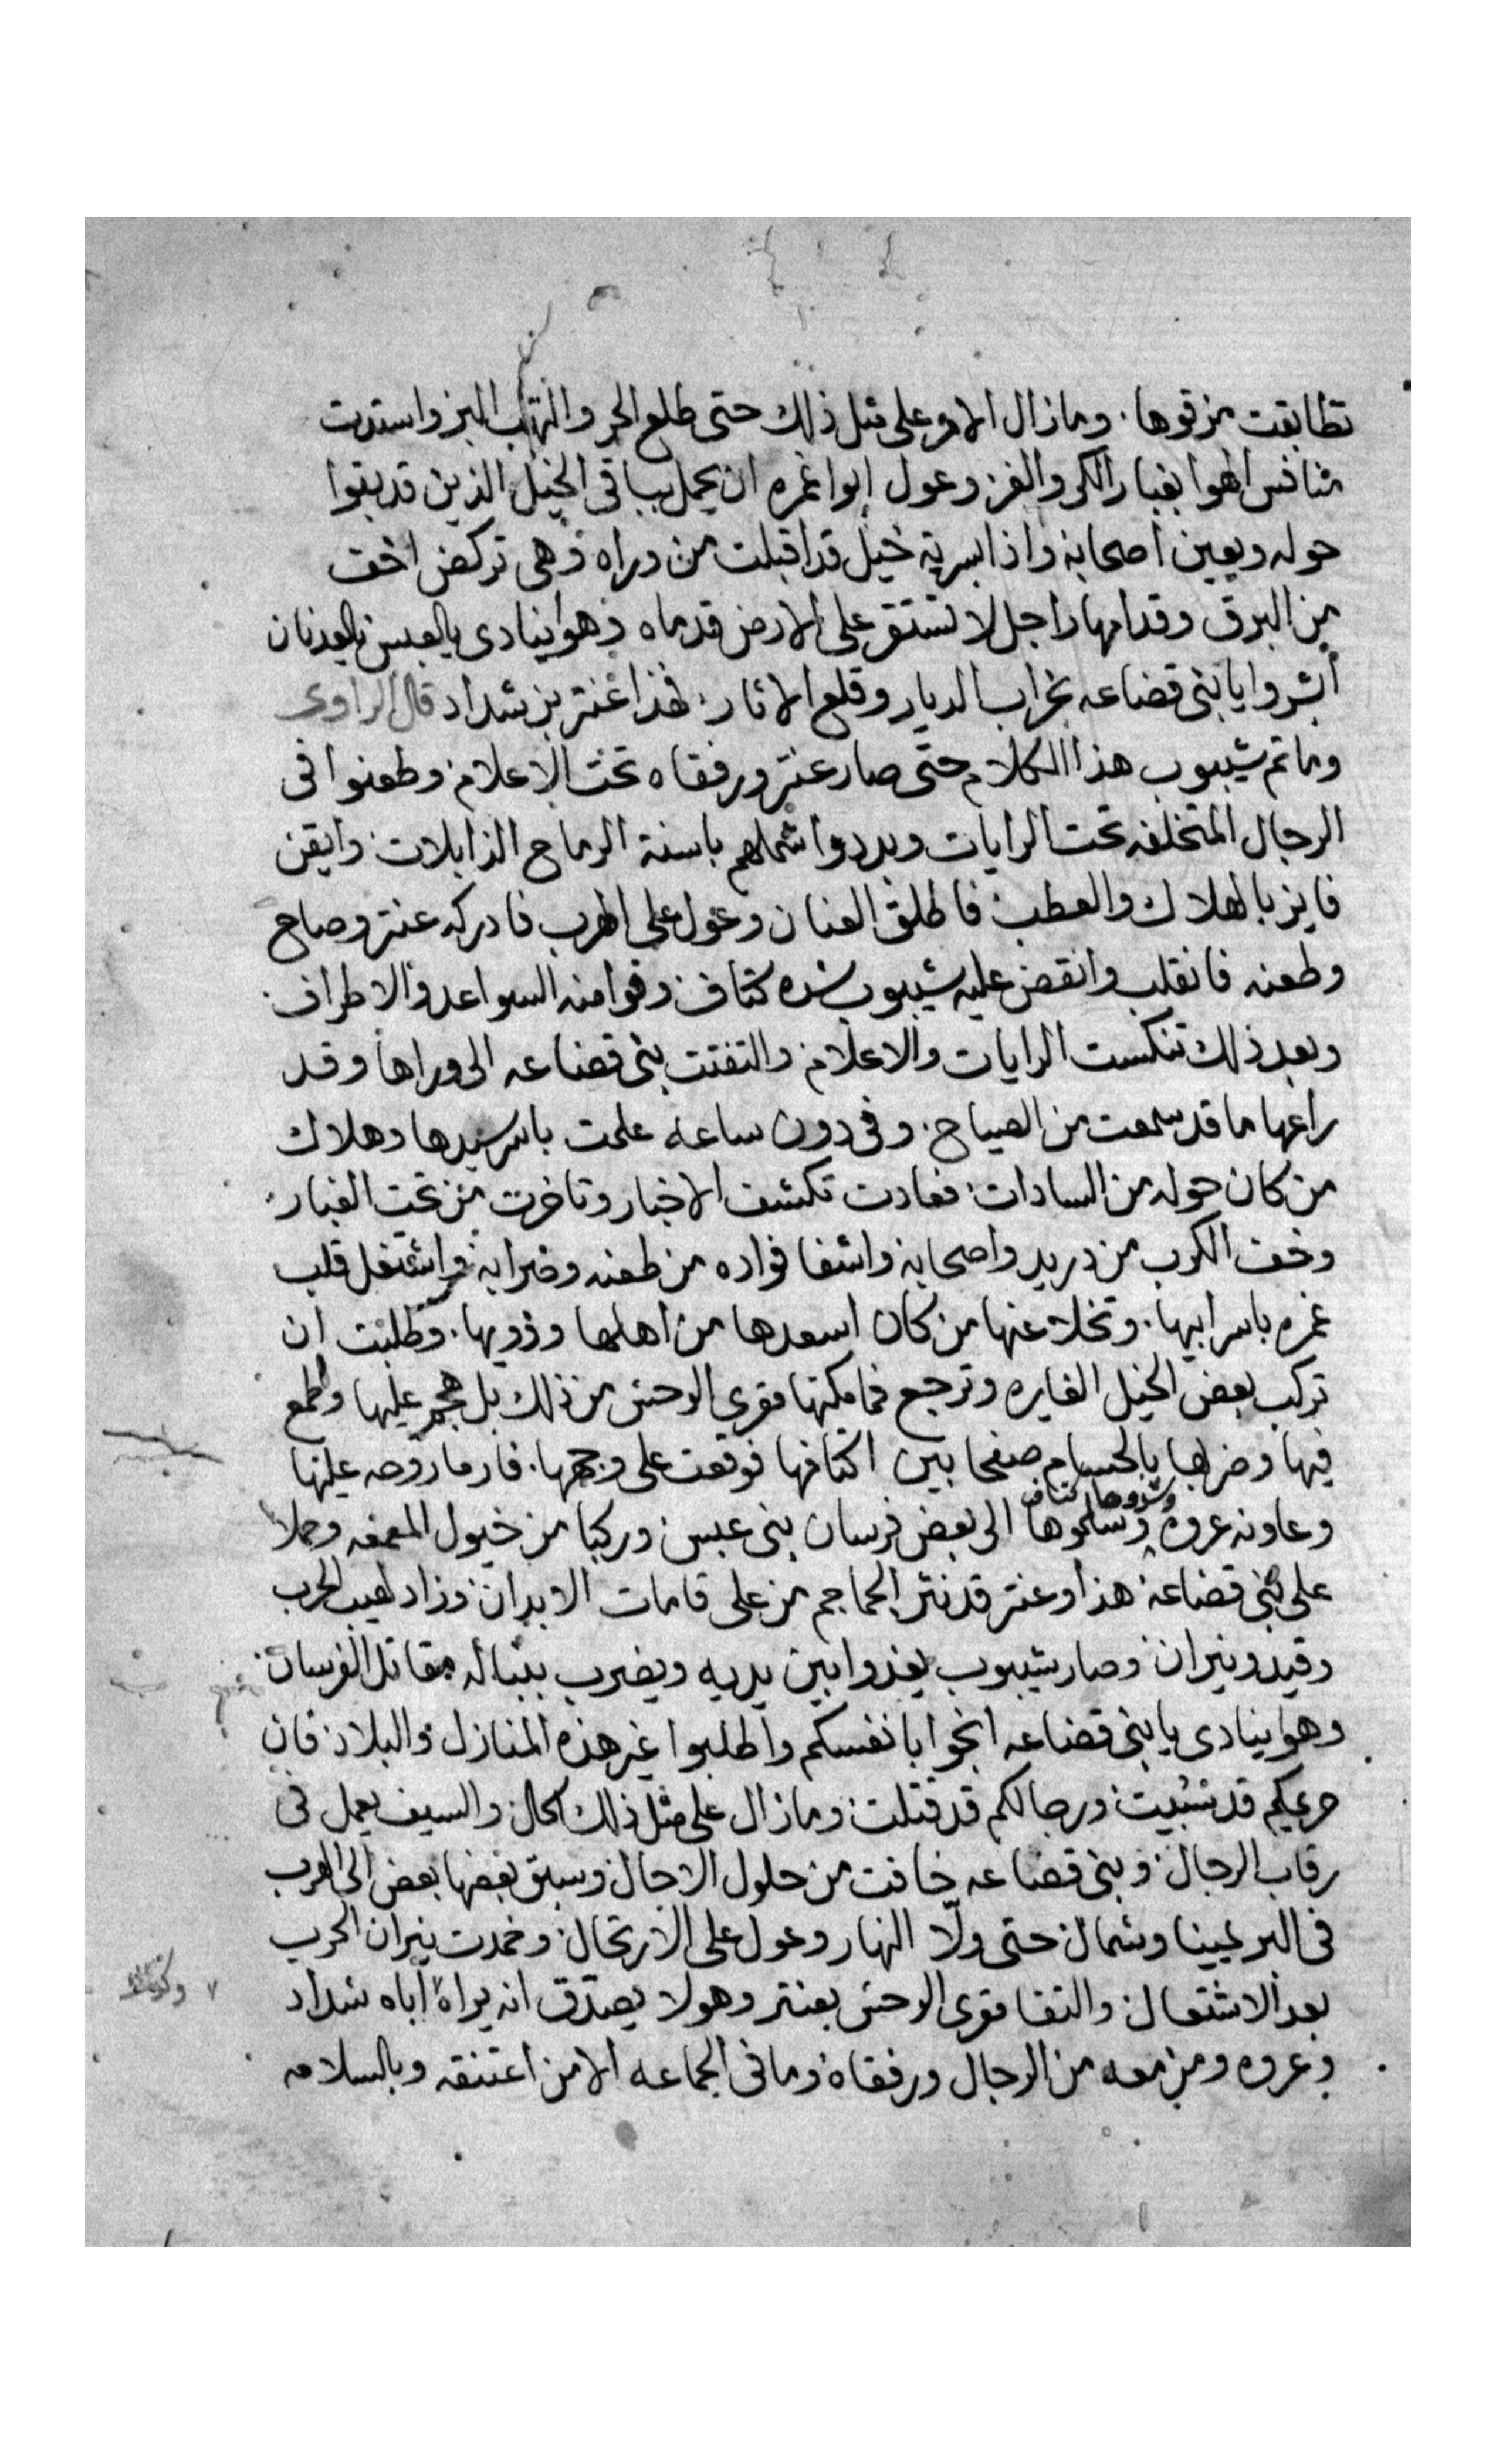 تطابقت من قوها . وما زال الامر على مثل ذلك حتى طلع الحر والتهب البر واستدت
منافس الهوا بغبار الكر والفر وعول ابوا غمره ان يحمل بباقي الخيل الذين قد بقوا
حوله ويعين اصحابه واذا بسرية خيل قد اقبلت من وراه وهى تركض اخف
من البرق وقدامها راجل لا تستقر على الارض قدماه وهوا ينادى يالعبس يالعدنان
أبشروا يا بنى قضاعه بخراب الديار وقلع الاثار فهذا عنتر بن شداد قال الراوى
وما تم شيبوب هذا الكلام حتى صار عنتر ورفقاه تحت الاعلام وطعنوا فى
الرجال المتخلفه تحت الرايات وبددوا شملهم باسنة الرماح الذابلات وايقن
فايز بالهلاك والعطب فاطلق العنان وعول على الهرب فادركه عنتر وصاح
وطعنه فانقلب وانقض عليه شيبوب شده كتاف وقوا منه السواعد والاطراف .
وبعد ذلك تنكست الرايات والاعلام والتفتت بنى قضاعه الى وراها وقد
راعها ما قد سمعت من الصياح . وفى دون ساعه علمت باسر سيدها وهلاك
من كان حوله من السادات فعادت تكشف الاخبار وتاخرت من تحت الغبار
وخف الكرب من دريد واصحابه واشفا فواده من طعنه وضرابه واشتغل قلب
غمره باسر ابيها . وتخلا عنها من كان اسعدها من اهلها وذويها . وطلبت ان
تركب بعض الخيل الغايره وترجع فما مكنها مقرى الوحش من ذلك بل هجم عليها وطمع
فيها وضربها بالحسام صفحا بين اكتافها فوقعت على وجهها . فارما روحه عليها
وعاونه عروه وشدوها كتاف وسلموها الى بعض فرسان بنى عبس وركبا من خيول المعمعه وحملا
على بنى قضاعه هذا وعنتر قد نثر الجماجم من على قامات الابدان وزاد لهيب الحرب
وقيد ونيران وصار شيبوب يغدوا بين يديه ويضرب بنباله مقاتل الفرسان
وهوا ينادى يا بنى قضاعه انجوا بانفسكم واطلبوا غير هذه المنازل والبلاد فان
حريمكم قد سبيت ورجالكم قد قتلت وما زال على مثل ذلك الحال والسيف يعمل فى
رقاب الرجال وبنى قضاعه خافت من حلول الاجال وسبق بعضها بعض الى الهرب
فى البر يمينا وشمال حتى ولّا النهار وعول على الارتحال وخمدت نيران الحرب
بعد الاشتعال والتقا مقرى الوحش بعنتر وهو لا يصدق انه يراه أباه شداد
وعروه ومن معه من الرجال ورفقاه وما فى الجماعه الا من اعتنقه وبالسلامه